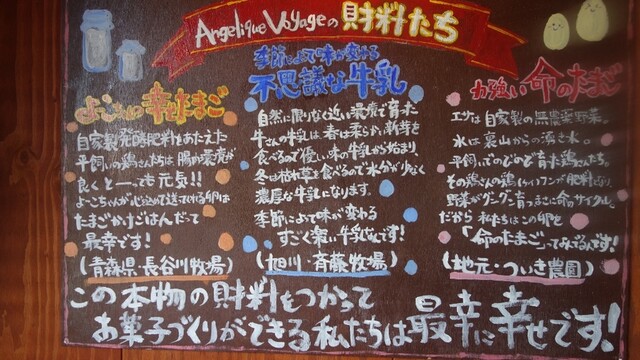 Angelique Voyageの財料たち
よーこさんの幸せたまご
自家製発酵肥料をあたえた
平飼いの鶏さんたちは腸の環境が
良くとーっても元気!!
よーこちゃんが心込めて送ってくれる卵は
たまごかけごはんだって
最幸です!
(青森県・長谷川牧場)
季節によって味が変わる
不思議な牛乳
自然に限りなく近い環境で育った
牛さんの牛乳は春は柔らかい新芽を
食べるので優しい味の牛乳から始まり、
冬は枯れ草を食べるので水分が少なく
濃厚な牛乳になります。
季節によって味が変わる
すごく楽しい牛乳さんです!
(旭川・斉藤牧場)
力強い命のたまご
エサは自家製の無農薬野菜。
水は裏山からの湧き水。
平飼いでのびのび育つ鶏さんたち。
その鶏さんの鶏ふんが肥料になり、
野菜がグングン育つまさに命のサイクル。
だから私たちはこの卵を
「命のたまご」ってよんでるんです!
(地元・ついき農園)
この本物の財料をつかって
お菓子づくりができる私たちは最幸に幸せです!